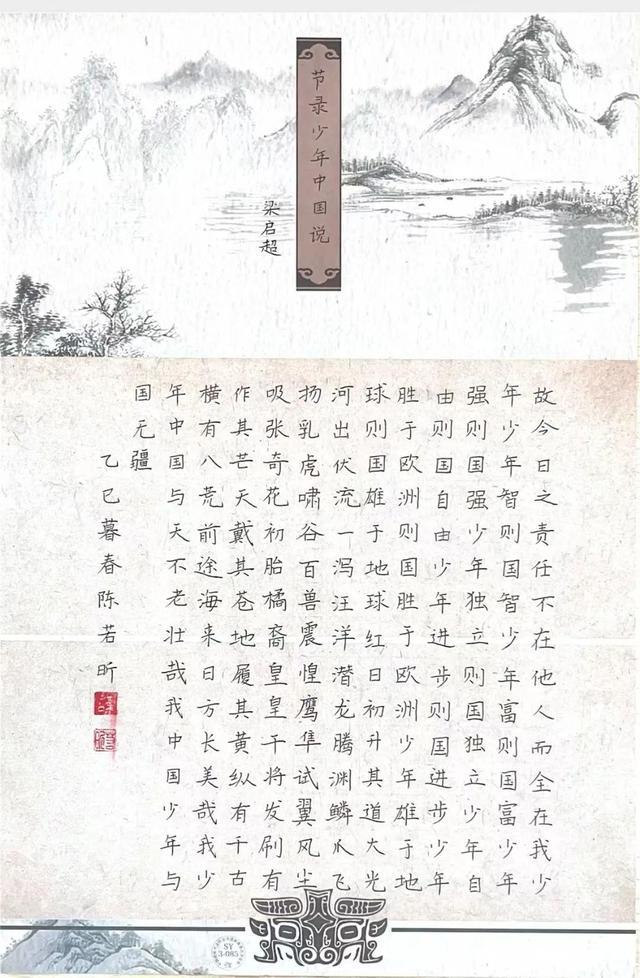 节录少年中国说
梁启超
故今日之责任不在他人而全在我少
年少年智则国智少年富则国富少年
强则国强少年独立则国独立少年自
由则国自由少年进步则国进步少年
胜于欧洲则国胜于欧洲少年雄于地
球则国雄于地球红日初升其道大光
河出伏流一泻汪洋潜龙腾渊鳞爪飞
扬乳虎啸谷百兽震惶鹰隼试翼风尘
吸张奇花初胎橘裔皇皇干将发刷有
作其芒天戴其苍地履其黄纵有千古
横有八荒前途海来日方长美哉我少
年中国与天不老壮哉我中国少年与
国无疆
乙巳暮春陈若昕
SY
3-085